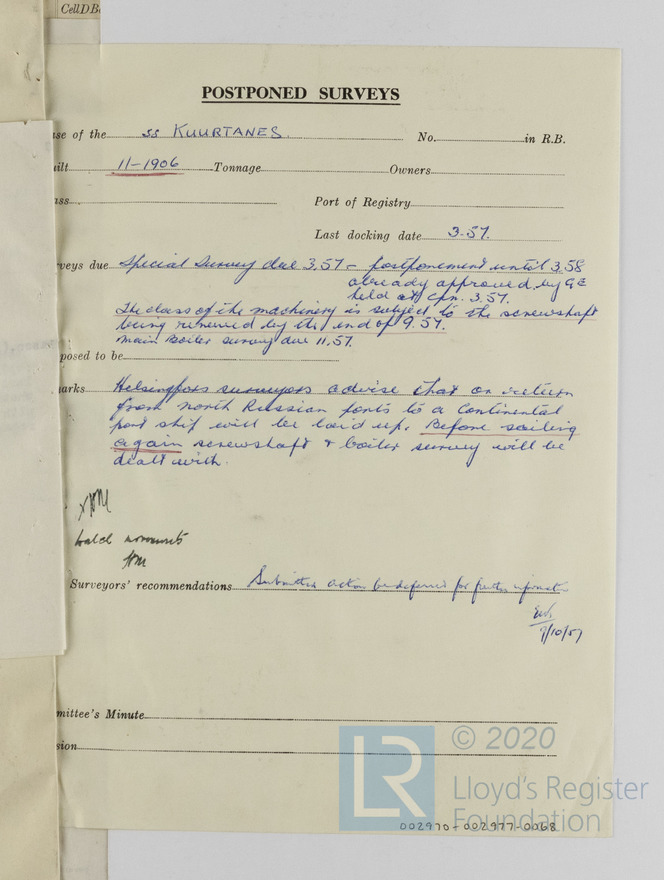 CellDB
POSTPONED SURVEYS
se of the ss KUURTANES. No. in R.B.
ilt 11-1906 Tonnage Owners
ass Port of Registry
Last docking date 3-57.
veys due Special Survey due 3.57 - postponement until 3.58
already approved by
held at cpn. 3.57.
The class of the machinery is subject to the screwshaft
being renewed by the end of 9.57.
Main Boiler survey due 11.57.
posed to be
arks Helsingfors surveyors advise that on return
from North Russian ports to a Continental
port ship will be laid up. Before sailing
again screwshaft & boiler survey will be
dealt with.
Surveyors' recommendations Submitted action be deferred for further information
7/10/57
mittee's Minute
sion
LR
© 2020
Lloyd's Register
Foundation
002970-002977-0068